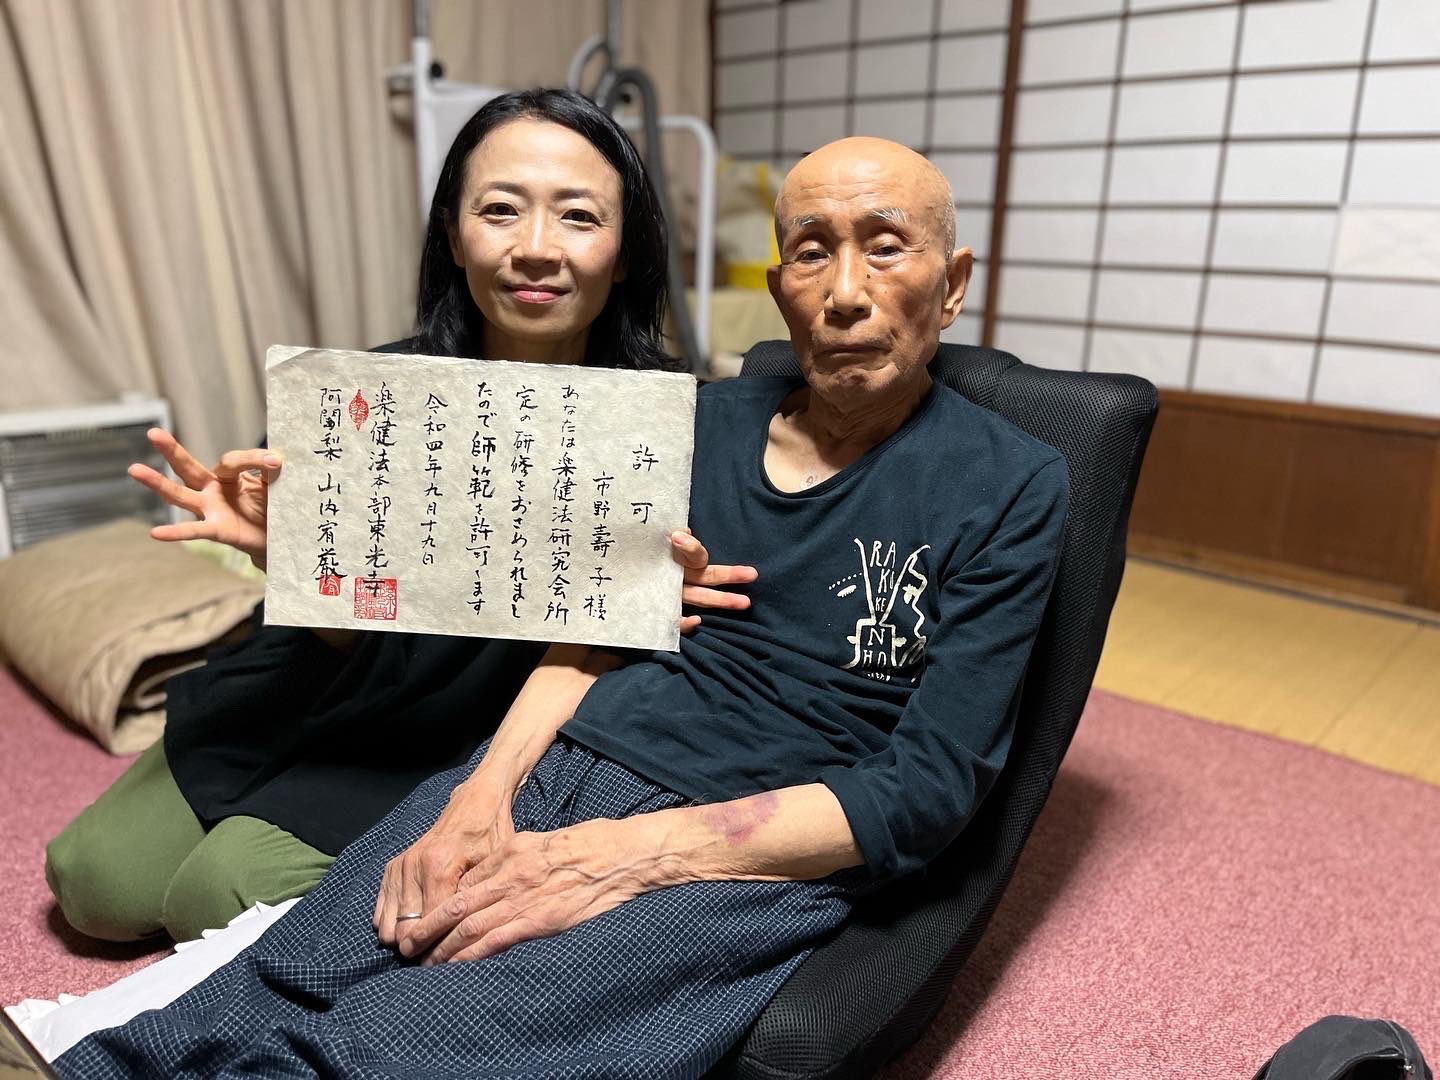 許可
市野壽子様
あなたは楽健法研究会所
定の研修をおさめられまし
たので師範を許可します
令和四年九月十九日
楽健法本部東光寺
阿闍梨 山内宥厳
RA
KU
KE
N
HO